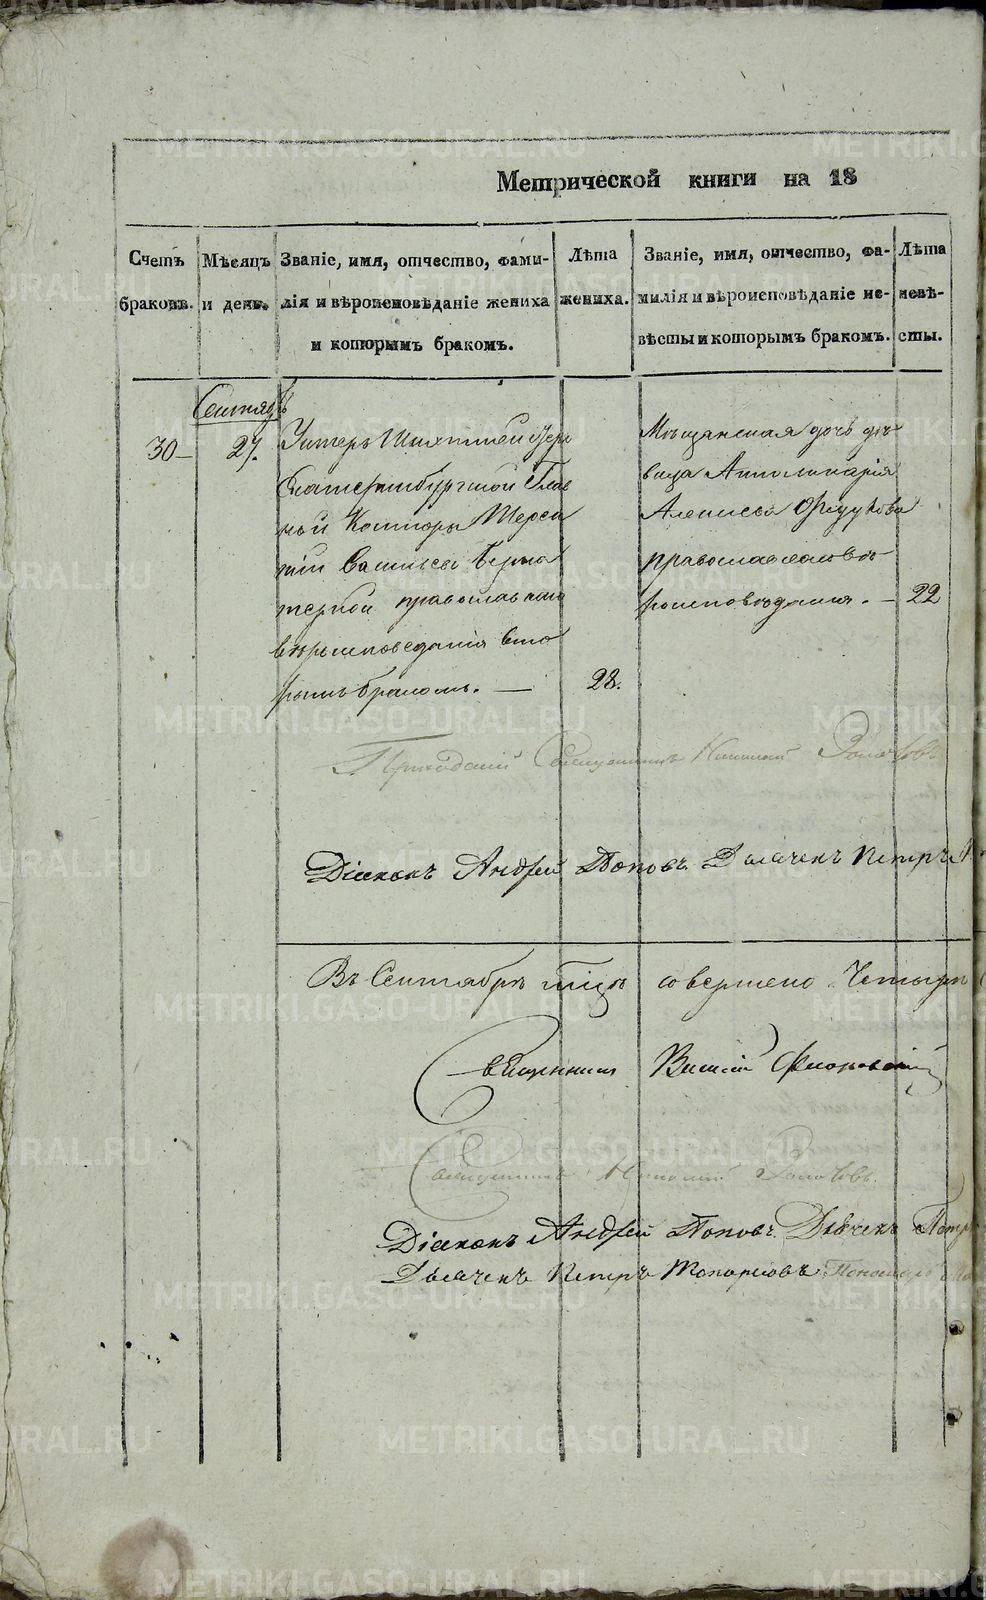 Метрической книги на 18
Счетъ браковъ.
Мѣсяцъ и день.
Званіе, имя, отчество, фами-
лія и вѣроисповѣданіе жениха
и которымъ бракомъ.
Лѣта
жениха.
Званіе, имя, отчество, фа-
милія и вѣроисповѣданіе не-
вѣсты и которымъ бракомъ.
Лѣта
невѣ-
сты.
Сентябр
30
27.
Унтеръ
Екатеринбургской Глав
ной Конторы
тій Васильевъ
православнаго
вѣроисповедания вто
рымъ бракомъ.
28.
Мѣщанская дочь дѣ
вица Апполинария
Алексѣева
православнаго вѣ
роисповѣдания.
22
Приходский Священникъ Николай
Діаконъ Андрей Поповъ. Дьячекъ Петръ
Въ Сентябрѣ мцѣ совершено Четыре
Священникъ
Священникъ Николай
Діаконъ Андрей Поповъ. Дьячекъ Петр
Дьячекъ Петръ Топорковъ.
METRIKI.GASO-URAL.RU